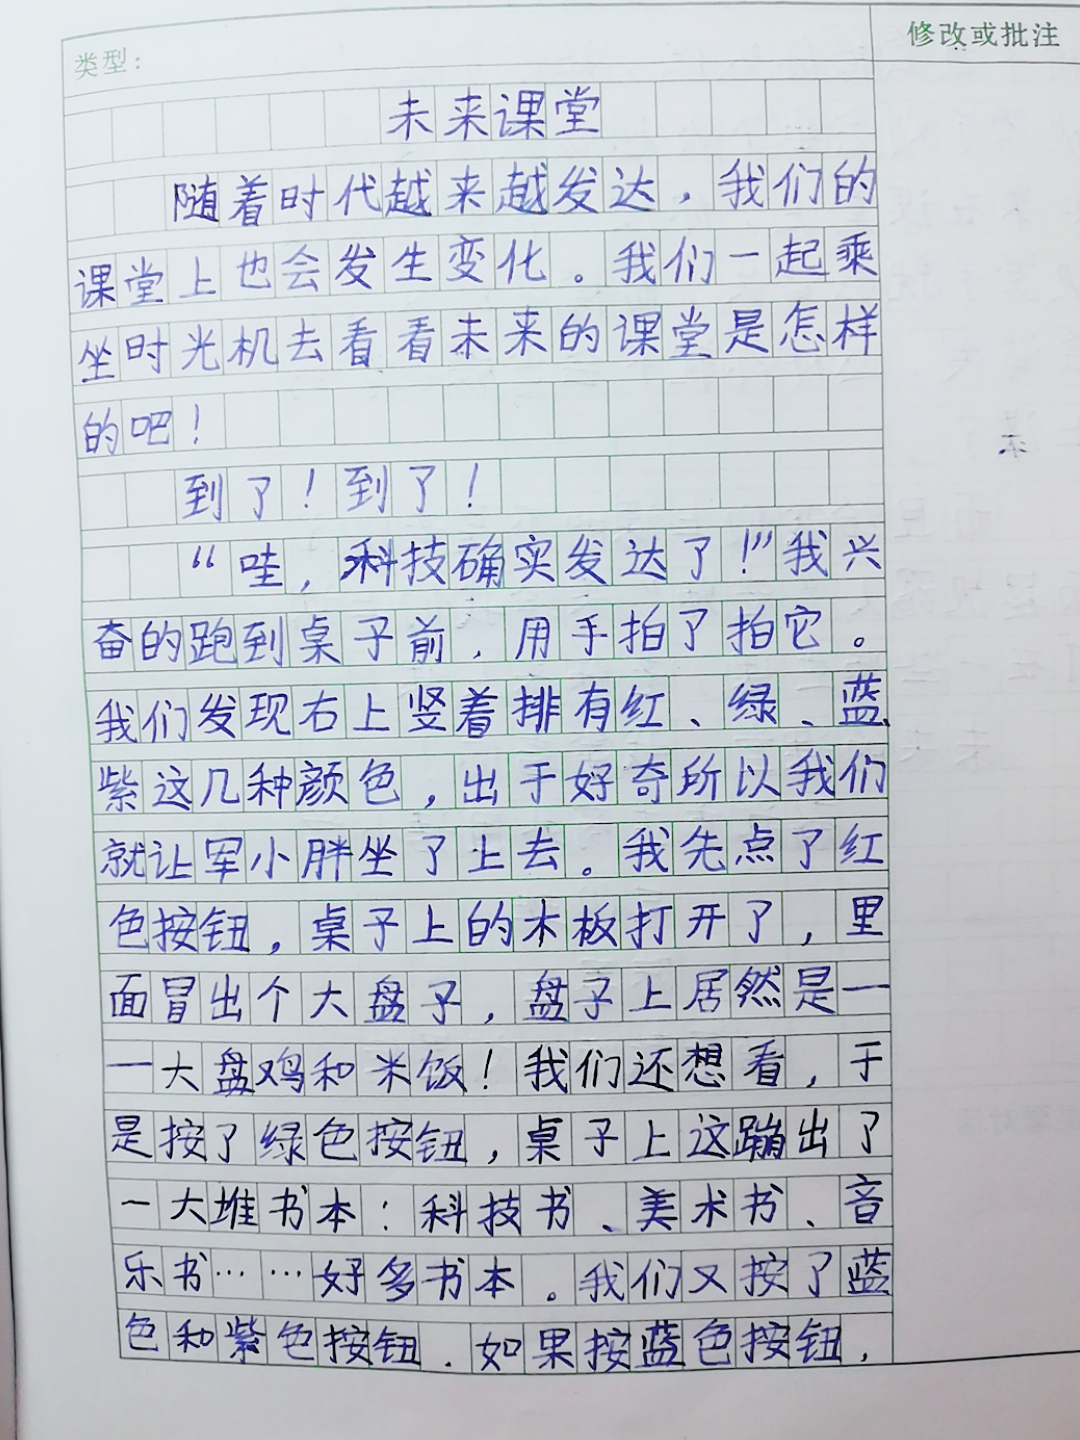 类型：
修改或批注
未来课堂
随着时代越来越发达，我们的
课堂上也会发生变化。我们一起乘
坐时光机去看看未来的课堂是怎样
的吧！
到了！到了！
“哇，科技确实发达了！”我兴
奋的跑到桌子前，用手拍了拍它。
我们发现右上竖着排有红、绿、蓝、
紫这几种颜色，出于好奇所以我们
就让军小胖坐了上去。我先点了红
色按钮，桌子上的木板打开了，里
面冒出个大盘子，盘子上居然是一
一大盘鸡和米饭！我们还想看，于
是按了绿色按钮，桌子上这蹦出了
一大堆书本：科技书、美术书、音
乐书……好多书本。我们又按了蓝
色和紫色按钮．如果按蓝色按钮，